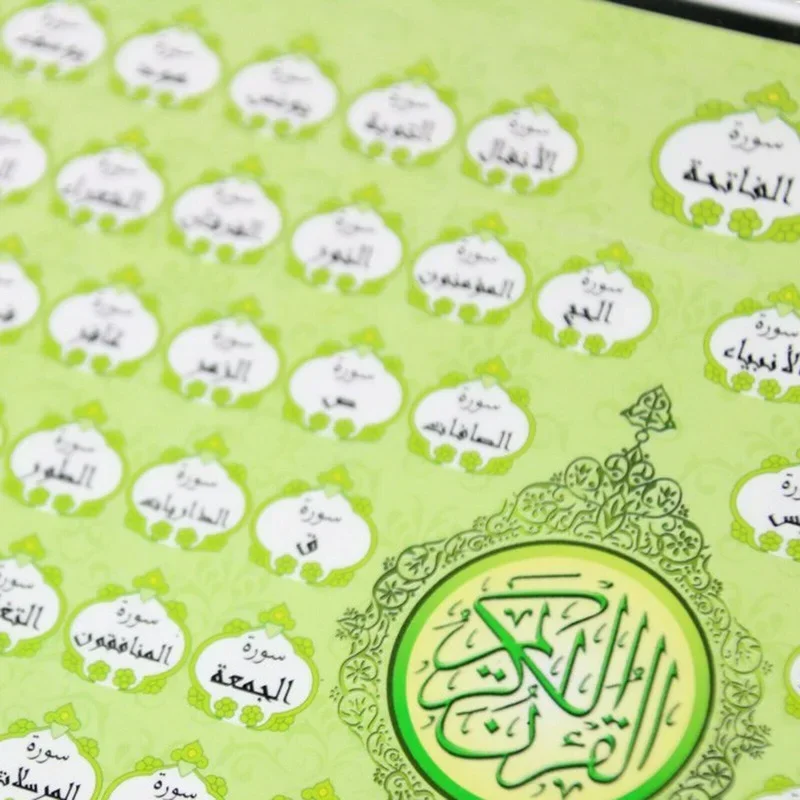 سورة
الفاتحة
سورة
الأنفال
سورة
التوبة
سورة
يونس
سورة
هود
سورة
يوسف
سورة
الأنبياء
سورة
الحج
سورة
المؤمنون
سورة
النور
سورة
الفرقان
سورة
الشعراء
سورة
الصافات
سورة
ص
سورة
الزمر
سورة
غافر
سورة
ق
سورة
الذاريات
سورة
الطور
سورة
الجمعة
سورة
المنافقون
سورة
المرسلات
سورة
القرآن الكريم